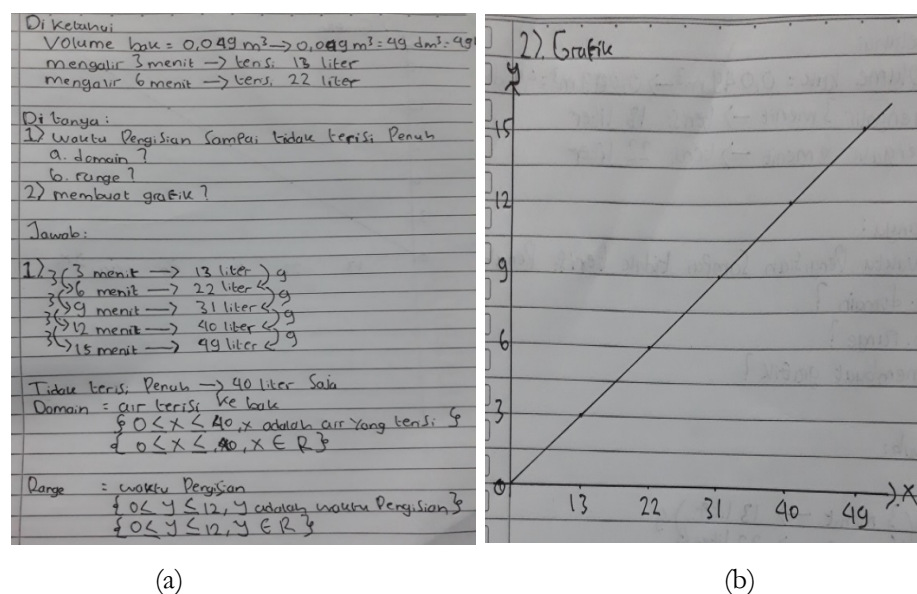 Diketahui
Volume bak = 0,049 m³ → 0,049 m³ = 49 dm³ = 49l
mengalir 3 menit → terisi 13 liter
mengalir 6 menit → terisi 22 liter
Ditanya :
1) waktu Pengisian Sampai tidak terisi Penuh
a. domain ?
b. range ?
2) membuat grafik ?
Jawab :
1) 3 3 menit → 13 liter 9
3 6 menit → 22 liter 9
3 9 menit → 31 liter 9
3 12 menit → 40 liter 9
15 menit → 49 liter
Tidak terisi Penuh → 40 liter Saja
Domain = air terisi ke bak
{ 0 ≤ x ≤ 40, x adalah air yang terisi }
{ 0 ≤ x ≤ 40, x ∈ R }
Range = waktu Pengisian
{ 0 ≤ y ≤ 12, y adalah waktu Pengisian }
{ 0 ≤ y ≤ 12, y ∈ R }
(a)
2). Grafik
y
15
12
9
6
3
0
13 22 31 40 49 x
(b)